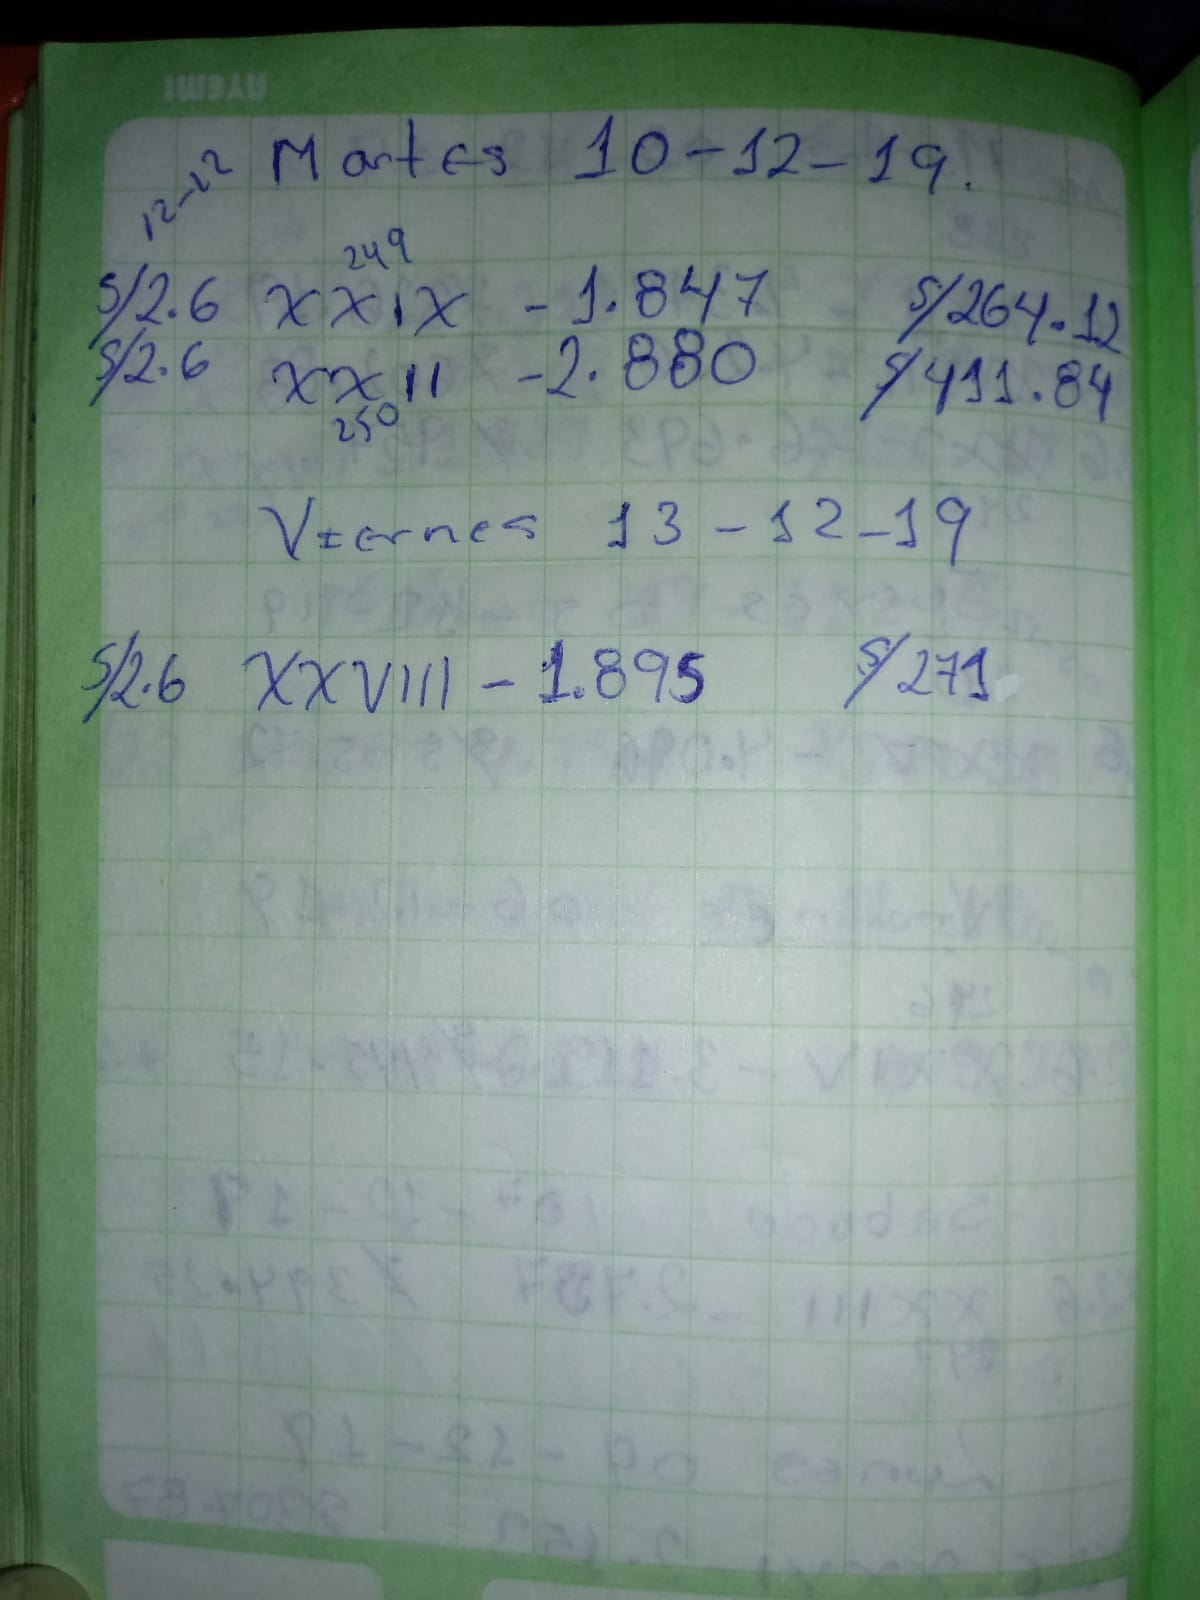 AYEMI
12-12 Martes 10-12-19.
249
S/2.6 XXIX - 1.847 S/264.12
S/2.6 XXII - 2.880 S/411.84
250
Viernes 13-12-19
S/2.6 XXVIII - 1.895 S/271